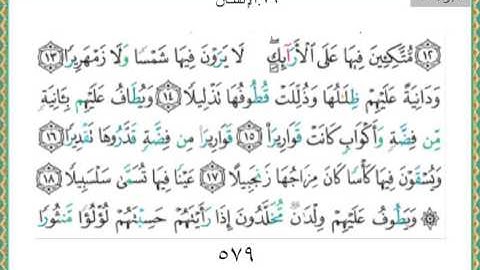 ١٢ مُّتَّكِـِٔينَ فِيهَا عَلَى الْأَرَآئِكِ لَا يَرَوْنَ فِيهَا شَمْسًا وَلَا زَمْهَرِيرًا ١٣
وَدَانِيَةً عَلَيْهِمْ ظِلَٰلُهَا وَذُلِّلَتْ قُطُوفُهَا تَذْلِيلًا ١٤ وَيُطَافُ عَلَيْهِم بِـَٔانِيَةٍ
مِّن فِضَّةٍ وَأَكْوَابٍ كَانَتْ قَوَارِيرَا۠ ١٥ قَوَارِيرَا۠ مِن فِضَّةٍ قَدَّرُوهَا تَقْدِيرًا ١٦
وَيُسْقَوْنَ فِيهَا كَأْسًا كَانَ مِزَاجُهَا زَنجَبِيلًا ١٧ عَيْنًا فِيهَا تُسَمَّىٰ سَلْسَبِيلًا ١٨
۞ وَيَطُوفُ عَلَيْهِمْ وِلْدَٰنٌ مُّخَلَّدُونَ إِذَا رَأَيْتَهُمْ حَسِبْتَهُمْ لُؤْلُؤًا مَّنثُورًا
٥٧٩